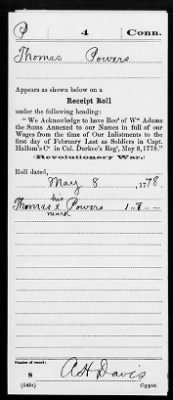 P 4 Conn.
Thomas Powers
Appears as shown below on a
Receipt Roll
under the following heading:
"We Acknowledge to have Recd of Wm Adams
the Sums Annexed to our Names in full of our
Wages from the Time of Our Inlistments to the
first day of February Last as Soldiers in Capt.
Hallam's Cº in Col. Durkee's Regt, May 8, 1778."
(Revolutionary War.)
Roll dated,
May 8, 1778.
his
Thomas x Powers
mark
Number of record:
8 A H Davis
Copyist.